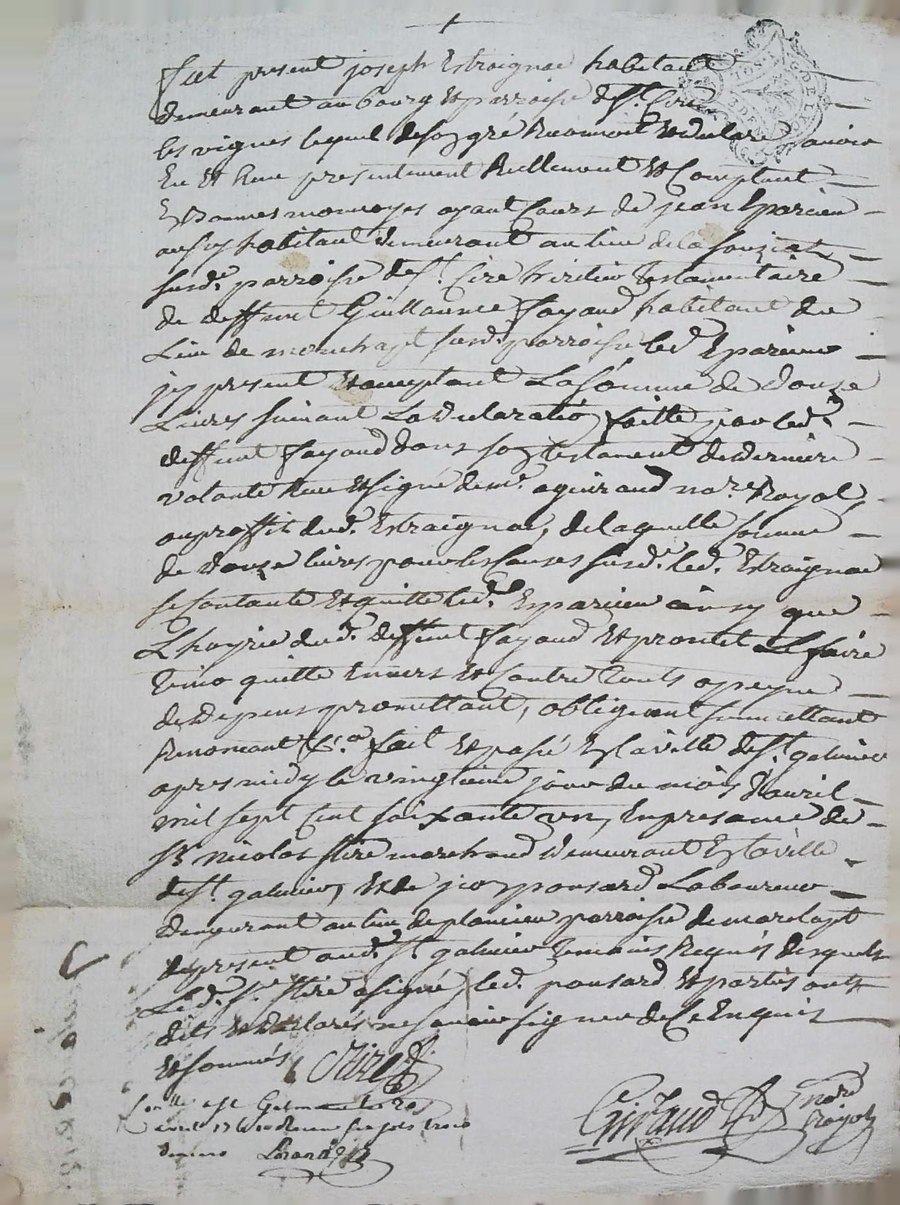 fut present joseph Estraignac habitant
demeurant au bourg et parroisse de st. Cire
les vignes lequel de son gré a reconnu et declare avoir
Eu et Receu presentement Reellement et Comptant
En bonnes monnoyes ayant Cours de jean Eparcieu
aussy habitant demeurant au lieu de la
susde. parroisse de st. Cire heritier testamentaire
de deffunt Guillaume fayaud habitant du
Lieu de susd. parroisse led. Eparcieu
jcy present et acceptant La Somme de Douze
Livres suivant La declaration faitte par led.
deffunt fayaud dans son testament de derniere
volonté Receu et signé de me. no.re Royal
au proffit dud. Estraignac, de laquelle somme
de douze livres pour les Causes susd. led. Estraignac
se contante et quitte led. Eparcieu ainsy que
L'hoyrie dud. deffunt fayaud et promet Le faire
tenir quitte Envers et Contre touts a peyne
de depens promettant, obligeant soumettant
Renoncant &.a fait et passé En la ville de st. galmier
apres midy le vingtieme jour du mois d'avril
mil sept cent soixante un, En presance de
sr. Nicolas marchand demeurant En la ville
de st. galmier, et de ponsard Laboureur
demeurant au lieu de parroisse de
de present aud. st. galmier temoins Requis desquels
Led. sr. a signé led. ponsard et parties ont
dits et declarés ne scavoir signer de Ce Enquis
et sommés
Con.llé a st Galmier le 20
avril 1761 Receu six sols trois
deniers
Guiraud no.re
royal